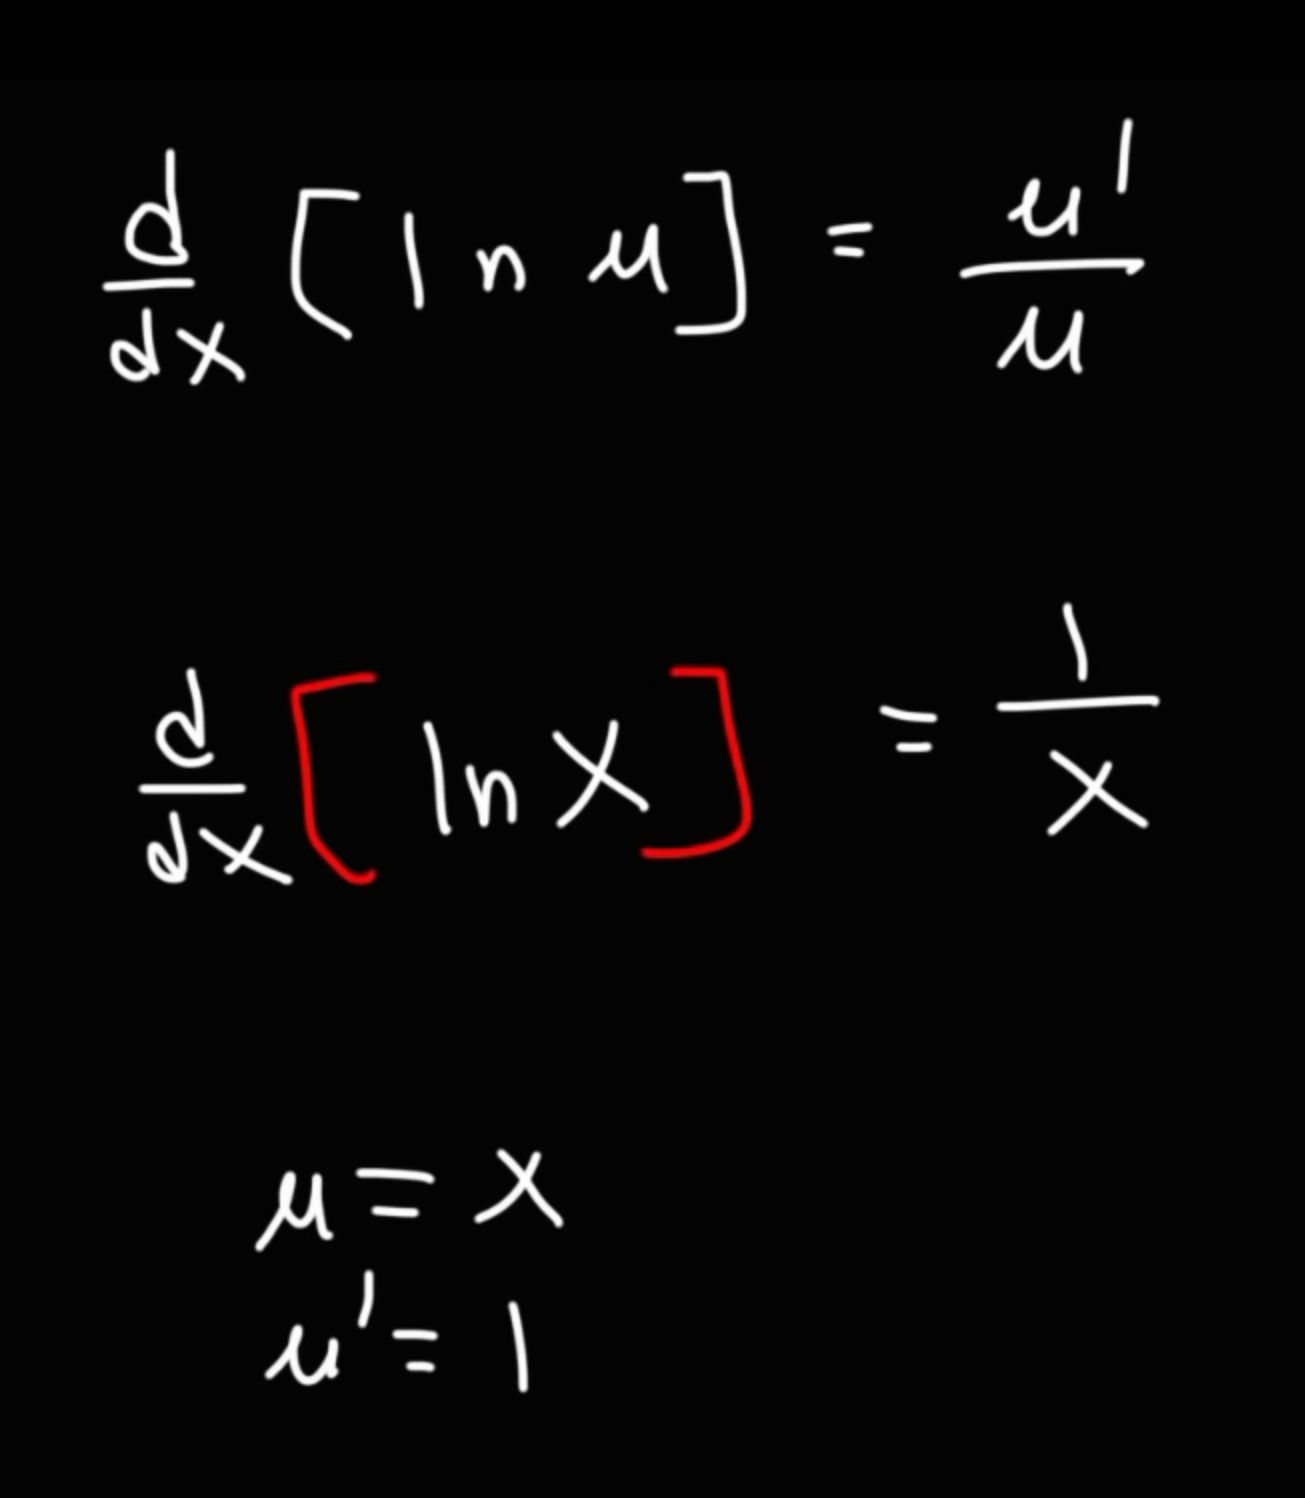 d/dx [ln u] = u'/u
d/dx [ln x] = 1/x
u = x
u' = 1